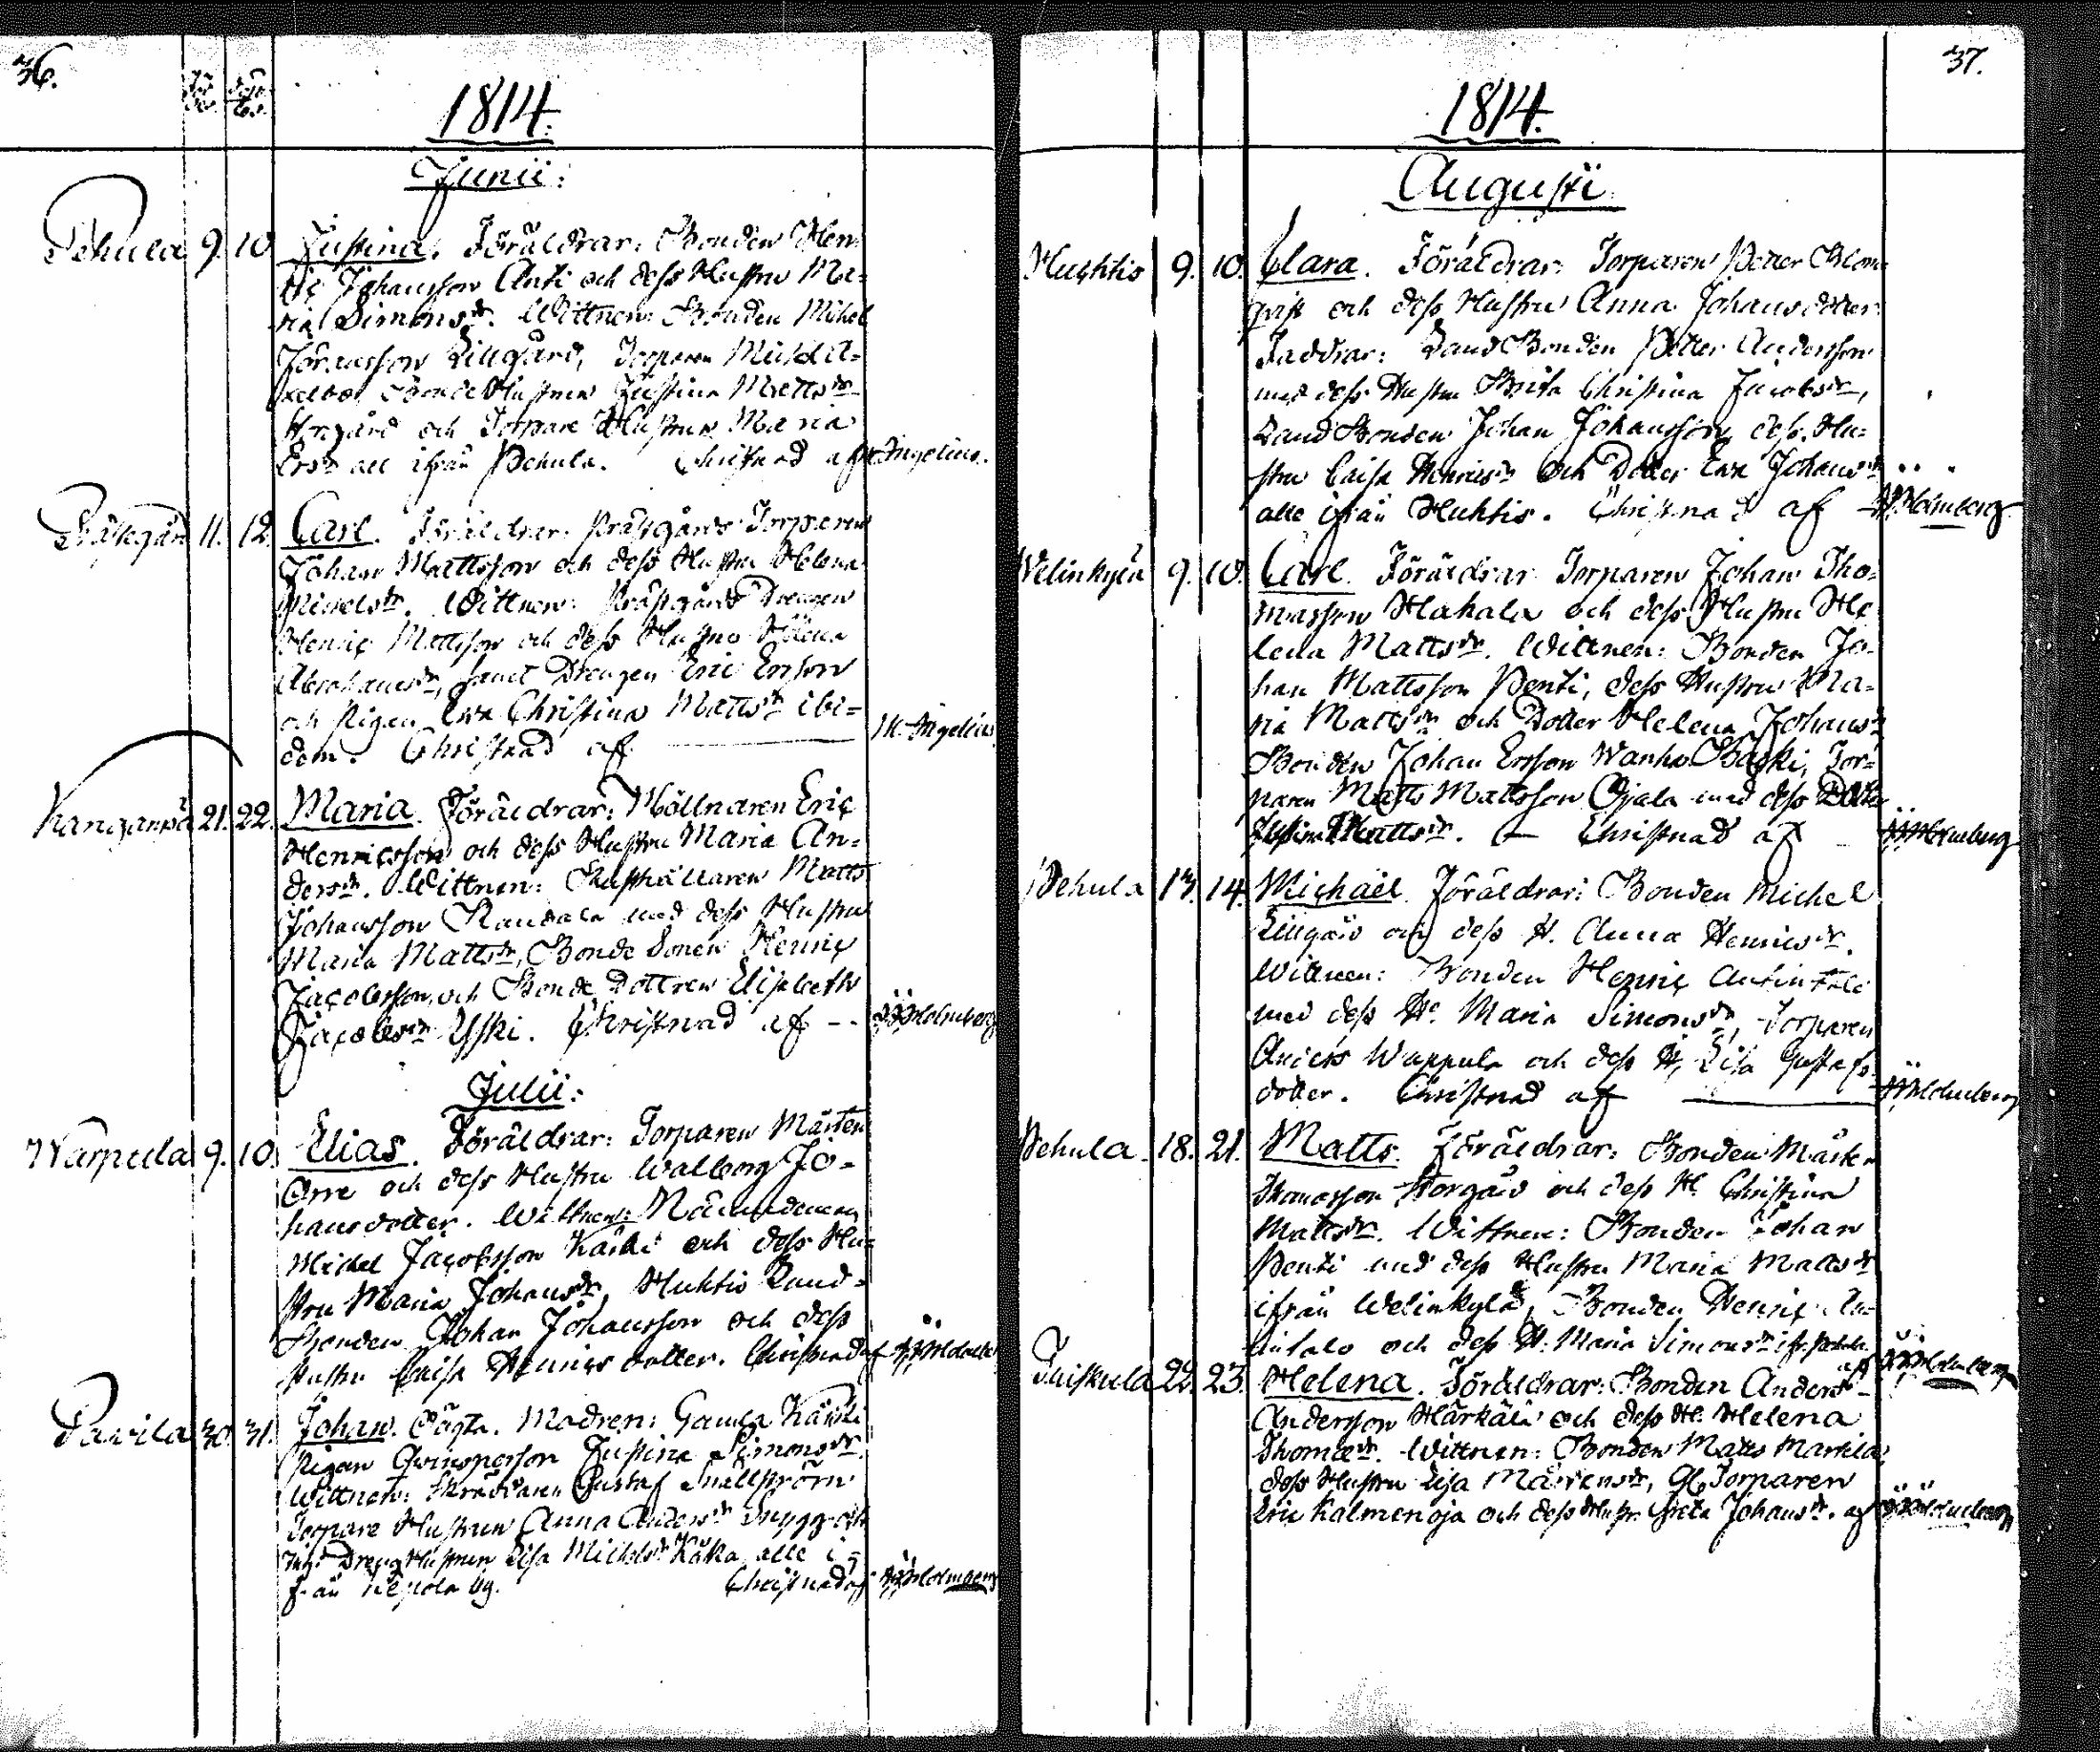 36.
1814.
Junii:
Pehula 9. 10. Justina. Föräldrar: Bonden Hen-
ric Johansson Anti och dess Hustru Ma-
ria Simonsdr. Wittnen: Bonden Mikel
Göransson Lillgård, Torparen Mickel
Bonde Hustrun Justina Mattsdr
och Torpare Hustrun Maria
Ersdr all ifrån Pehula. Christnad af Ingelius.
Prästgård 11. 12. Carl. Föräldrar: Prästgårds Torparen
Johan Mattsson och dess Hustru Helena
Mickelsdr. Wittnen: Prästgårds Drengen
Henric Mattsson och dess Hustru Helena
Abrahamsdr, samt Drengen Eric Ersson
och Pigan Eva Christina Mattsdr ibi-
dem. Christnad af Ingelius
Kanganpä 21. 22. Maria. Föräldrar: Möllnaren Eric
Henricsson och dess Hustru Maria An-
dersdr. Wittnen: Rusthållaren Matts
Johansson Randala med dess Hustru
Maria Mattsdr, Bonde Sonen Henric
Jacobsson, och Bonde Dottren Elisabeth
Jacobsdr Yski. Christnad af -- Holmberg
Julii:
Warpula 9. 10. Elias. Föräldrar: Torparen Mårten
Orre och dess Hustru Walborg Jo-
hansdotter. Wittnen: Nämndeman
Mickel Jacobsson Käski och dess Hu-
stru Maria Johansdr, Huhtis Land-
Bonden Johan Johansson och dess
Hustru Caisa Henricsdotter. Christnad af
Pavila 30. 31. Johan. Oägta. Modren: Gamla Käski
Pigan Qvinsperson Justina Simonsdr.
Wittnen: Skräddaren Gustaf Snellström
Torpare Hustrun Anna Andersdr
Dreng Hustrun Lisa Mickelsdr Käka alle i-
från by. Christnad af Holmberg
37.
1814.
Augusti
Huhtis 9. 10. Clara. Föräldrar: Torparen Petter Blom-
qvist och dess Hustru Anna Johansdotter
Faddrar: Land Bonden Petter Andersson
med dess Hustru Brita Christina Jacobsdr,
Land Bonden Johan Johansson, dess Hu-
stru Caisa Henricsdr och Dotter Eva Johansdr
alle ifrån Huhtis. Christnad af Holmberg
Welinkylä 9. 10. Carl. Föräldrar: Torparen Johan Tho-
masson Hakala och dess Hustru He-
lena Mattsdr. Wittnen: Bonden Jo-
han Mattsson Penti, dess Hustru Ma-
ria Mattsdr och Dotter Helena Johansdr
Bonden Johan Ersson Wanha Baski, Tor-
paren Matts Mattsson Ojala med dess Dotter
Mattsdr. Christnad af Holmberg
Pehula 13. 14. Michäel. Föräldrar: Bonden Michel
Lillgård och dess H. Anna Henricsdr.
Wittnen: Bonden Henric Antintalo
med dess H. Maria Simonsdr, Torparen
Anders Wappula och dess H. Lisa Gustafs-
dotter. Christnad af Holmberg
Pehula 18. 21. Matts. Föräldrar: Bonden Mårten
Thomasson Storgård och dess H. Christina
Mattsdr. Wittnen: Bonden Johan
Penti med dess Hustru Maria Mattsdr
ifrån Welinkylä, Bonden Henric An-
tintalo och dess H. Maria Simonsdr ifr. Pehula
af Holmberg
22. 23. Helena. Föräldrar: Bonden Anders
Andersson Härkälä och dess H. Helena
Thomædr. Wittnen: Bonden Matts Markila,
dess Hustru Lisa Mårtensdr, Torparen
Eric Kalmenoja och dess Hustr. Greta Johansdr. af Holmberg